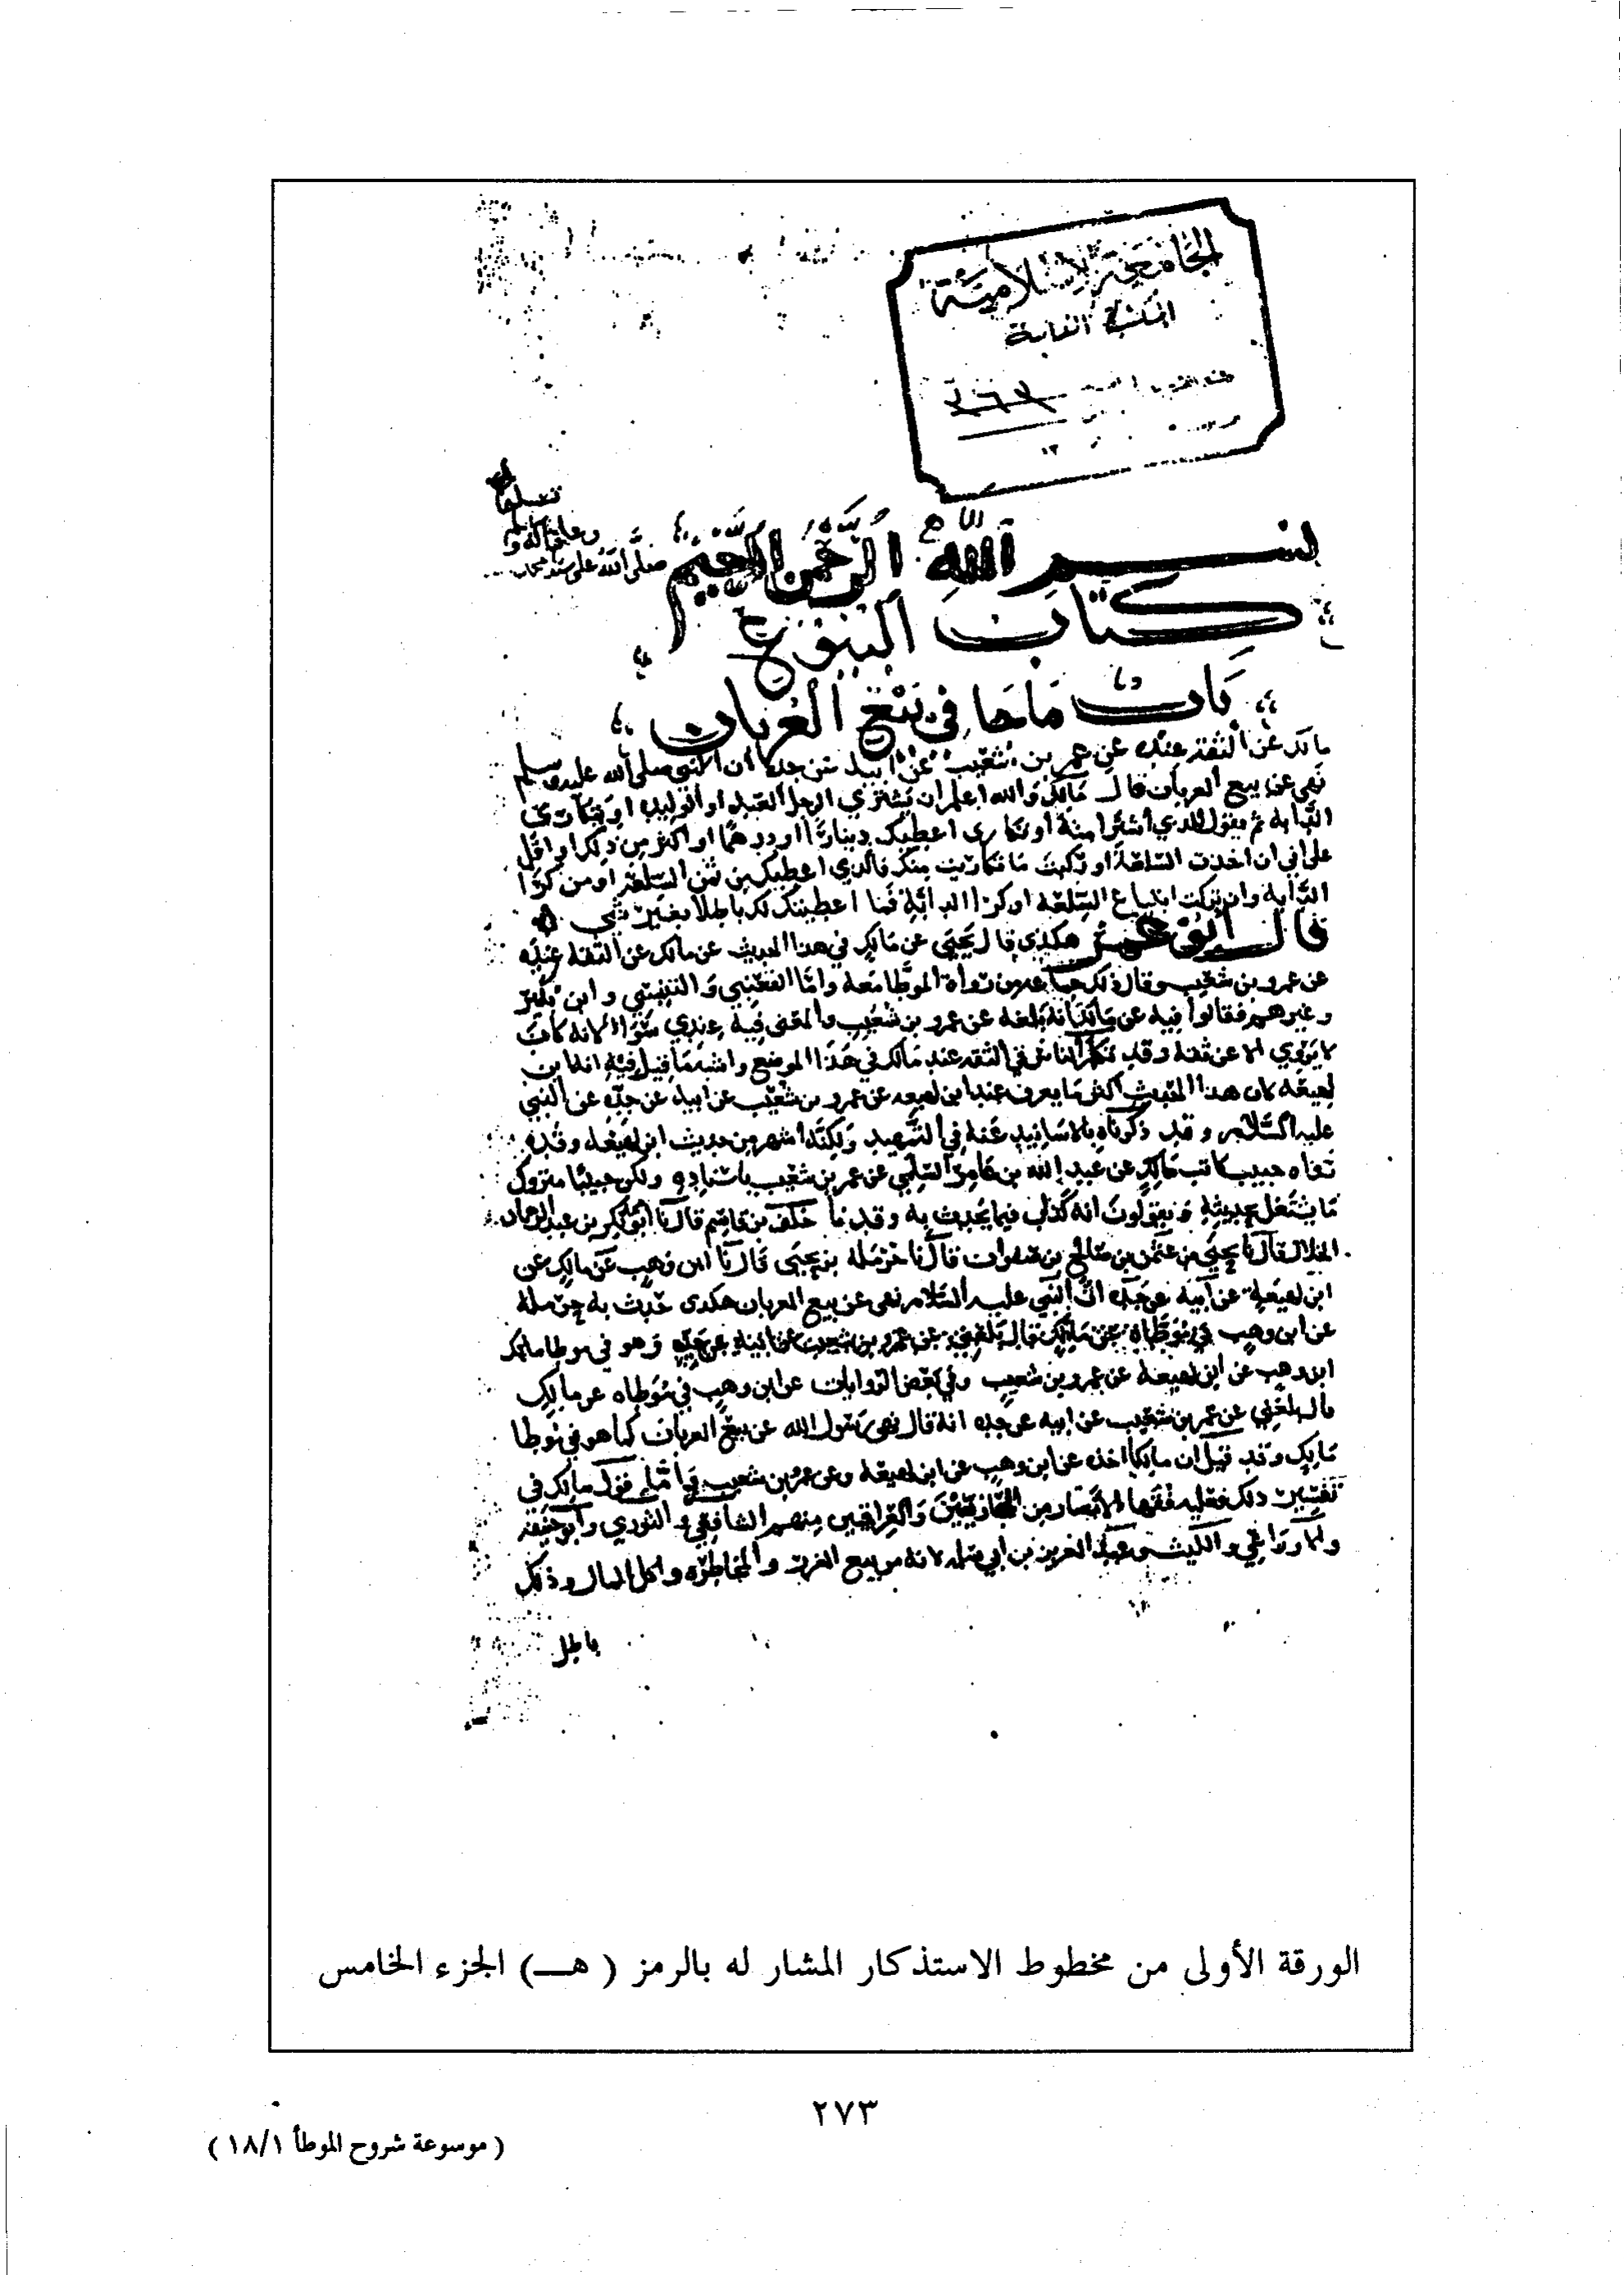 الجامعة الإسلامية
المكتبة العامة
بسم الله الرحمن الرحيم
صلى الله على سيدنا محمد
وعلى آله و
تسليما
كتاب البيوع
باب ما جا في بيع العربان
مالك عن الثقة عنده عن عمرو بن شعيب عن ابيه عن جده ان النبي صلى الله عليه وسلم
نهى عن بيع العربان قال مالك والله اعلم ان يشتري الرجل العبد او الوليدة او يتكارى
الدابة ثم يقول للذي اشترا منه او تكارى اعطيك دينارا او درهما او اكثر من ذلك او اقل
على اني ان اخذت السلعة او ركبت ما تكاريت منك فالذي اعطيك من ثمن السلعة او من كرا
الدابة وان تركت ابتياع السلعة او كرا الدابة فما اعطيتك لك باطلا بغير شي
قال ابو عمر هكذى قال يحيى عن مالك في هذا الحديث عن مالك عن الثقة عنده
عن عمرو بن شعيب وقال ذلك جماعة من رواة الموطا معه واما القعنبي والتنيسي وابن بكير
وغيرهم فقالوا فيه عن مالك انه بلغه عن عمرو بن شعيب والمعنى فيه عندي سوا لانه كان
لا يروي الا عن ثقة وقد تكلم الناس في الثقة عند مالك في هذا الموضع واشبه ما قيل فيه انه ابن
لهيعة لان هذا الحديث اكثر ما يعرف عند ابن لهيعه عن عمرو بن شعيب عن ابيه عن جده عن النبي
عليه السلام وقد ذكرناه بالاسانيد عنه في التمهيد ولكنه اشهر من حديث ابن لهيعه وقد
رواه حبيب كاتب مالك عن عبد الله بن عامر الاسلمي عن عمرو بن شعيب باسناده ولكن حبيبا متروك
ما يشتغل بحديثه ويقولون انه كذاب فيما يحدث به وقد نا خلف بن قاسم قال نا ابو بكر بن عبد الرحمان
الخلال قال نا يحيى بن عثمن بن صالح بن صفوان قال نا حرملة بن يحيى قال نا ابن وهب عن مالك عن
ابن لهيعة عن ابيه عن جده ان النبي عليه السلام نهى عن بيع العربان هكذى حدث به حرملة
عن ابن وهب في موطاه عن مالك قال بلغني عن عمرو بن شعيب عن ابيه عن جده وهو في موطا مالك
ابن وهب عن ابن لهيعة عن عمرو بن شعيب وفي بعض الروايات عن ابن وهب في موطاه عن مالك
قال بلغني عن عمرو بن شعيب عن ابيه عن جده انه قال نهى رسول الله عن بيع العربان كما هو في موطا
مالك وقد قيل ان مالكا اخذه عن ابن وهب عن ابن لهيعة وعن عمرو بن شعيب واما قول مالك في
تفسير ذلك فعليه فقها الامصار من الحجازيين والعراقيين منهم الشافعي والثوري وابو حنيفة
والاوزاعي والليث وعبد العزيز بن ابي سلمه لانه من بيع الغرر والمخاطرة واكل المال وذلك
باطل
الورقة الأولى من مخطوط الاستذكار المشار له بالرمز ( هـــ ) الجزء الخامس
٢٧٣
( موسوعة شروح الموطأ ١٨/١ )